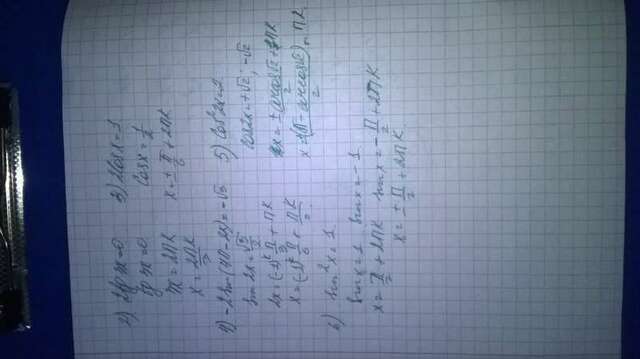 2) 2tg3x=0
tg 3x=0
3x=2πk
x=2πk/3
3) 2cosx=1
cosx=1/2
x=±π/6+2πk
4) -2sin(π-2x)=-√3
sin2x=√3/2
2x=(-1)ᵏ π/3+πk
x=(-1)ᵏ π/6+πk/2
5) cos²2x=2
cos2x=+√2; -√2
x=±(π-arccos√2)/2+πk
6) sin²x=1
sinx=1 sinx=-1
x=π/2+2πk sinx=-π/2+2πk
x=±π/2+2πk